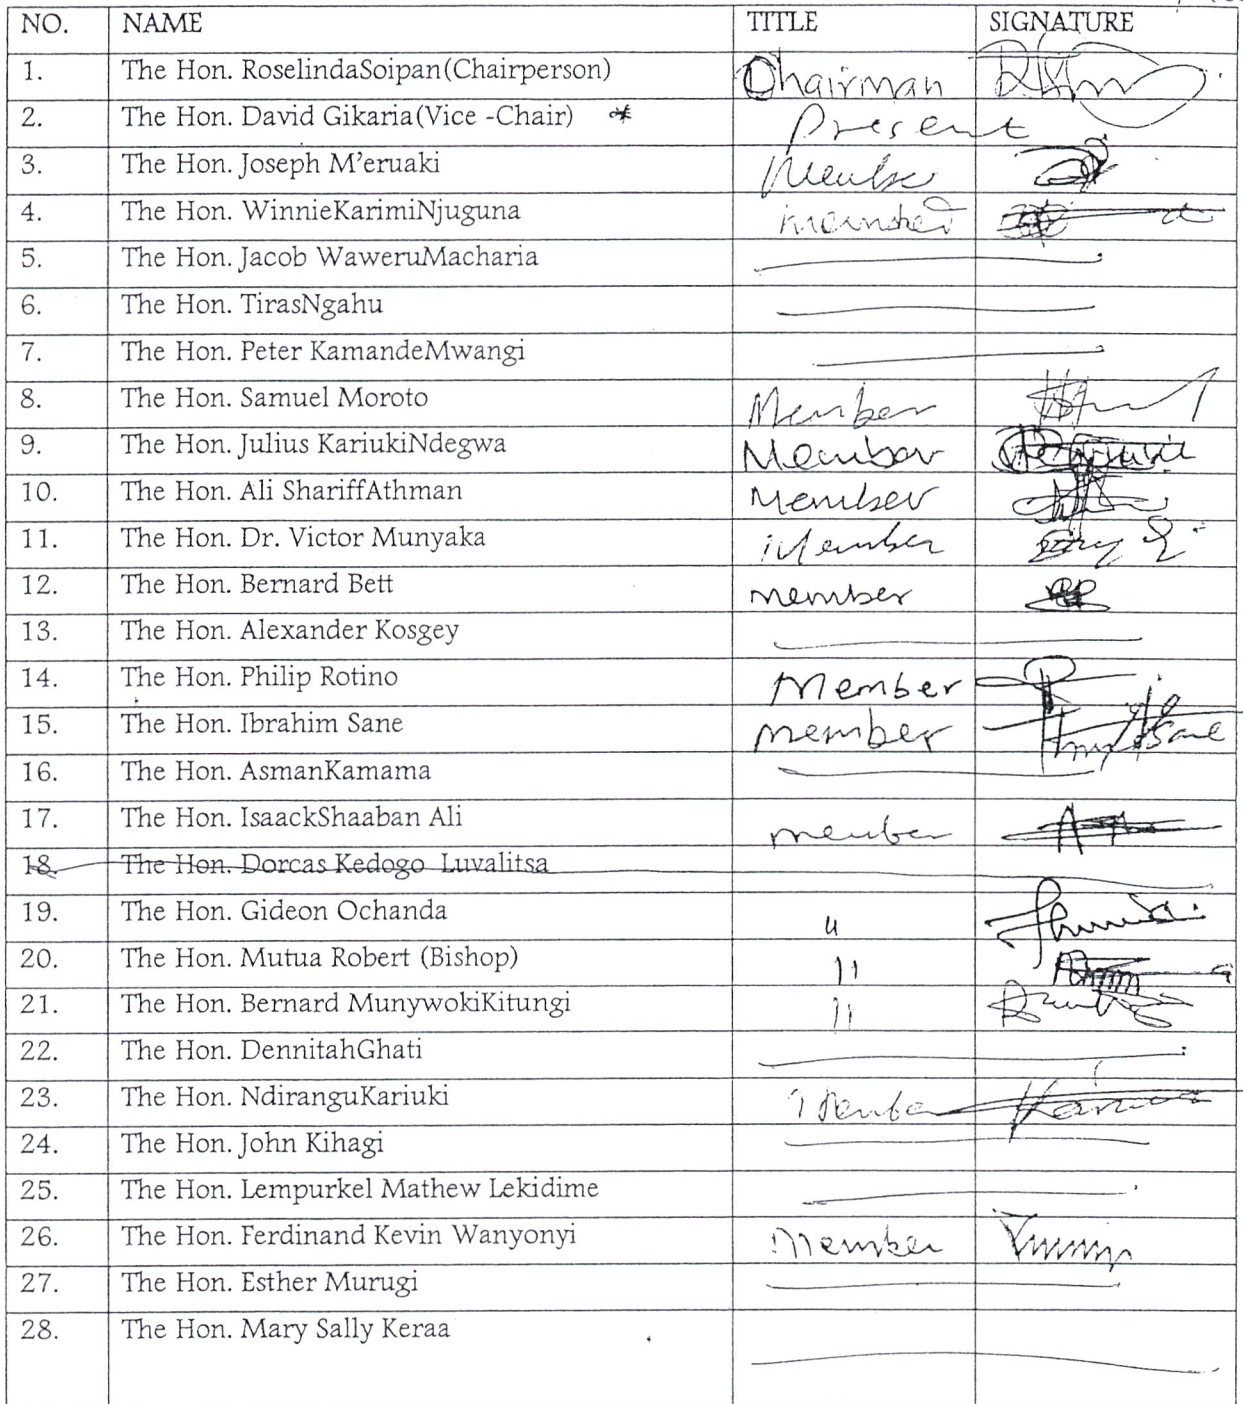 NO. NAME TITLE SIGNATURE
1. The Hon. RoselindaSoipan(Chairperson) Chairman
2. The Hon. David Gikaria(Vice -Chair) * Present
3. The Hon. Joseph M'eruaki Member
4. The Hon. WinnieKarimiNjuguna member
5. The Hon. Jacob WaweruMacharia
6. The Hon. TirasNgahu
7. The Hon. Peter KamandeMwangi
8. The Hon. Samuel Moroto Member
9. The Hon. Julius KariukiNdegwa Member
10. The Hon. Ali ShariffAthman Member
11. The Hon. Dr. Victor Munyaka Member
12. The Hon. Bernard Bett member
13. The Hon. Alexander Kosgey
14. The Hon. Philip Rotino Member
15. The Hon. Ibrahim Sane member
16. The Hon. AsmanKamama
17. The Hon. IsaackShaaban Ali member
18. The Hon. Dorcas Kedogo Luvalitsa
19. The Hon. Gideon Ochanda "
20. The Hon. Mutua Robert (Bishop) "
21. The Hon. Bernard MunywokiKitungi "
22. The Hon. DennitahGhati
23. The Hon. NdiranguKariuki Member
24. The Hon. John Kihagi
25. The Hon. Lempurkel Mathew Lekidime
26. The Hon. Ferdinand Kevin Wanyonyi Member
27. The Hon. Esther Murugi
28. The Hon. Mary Sally Keraa